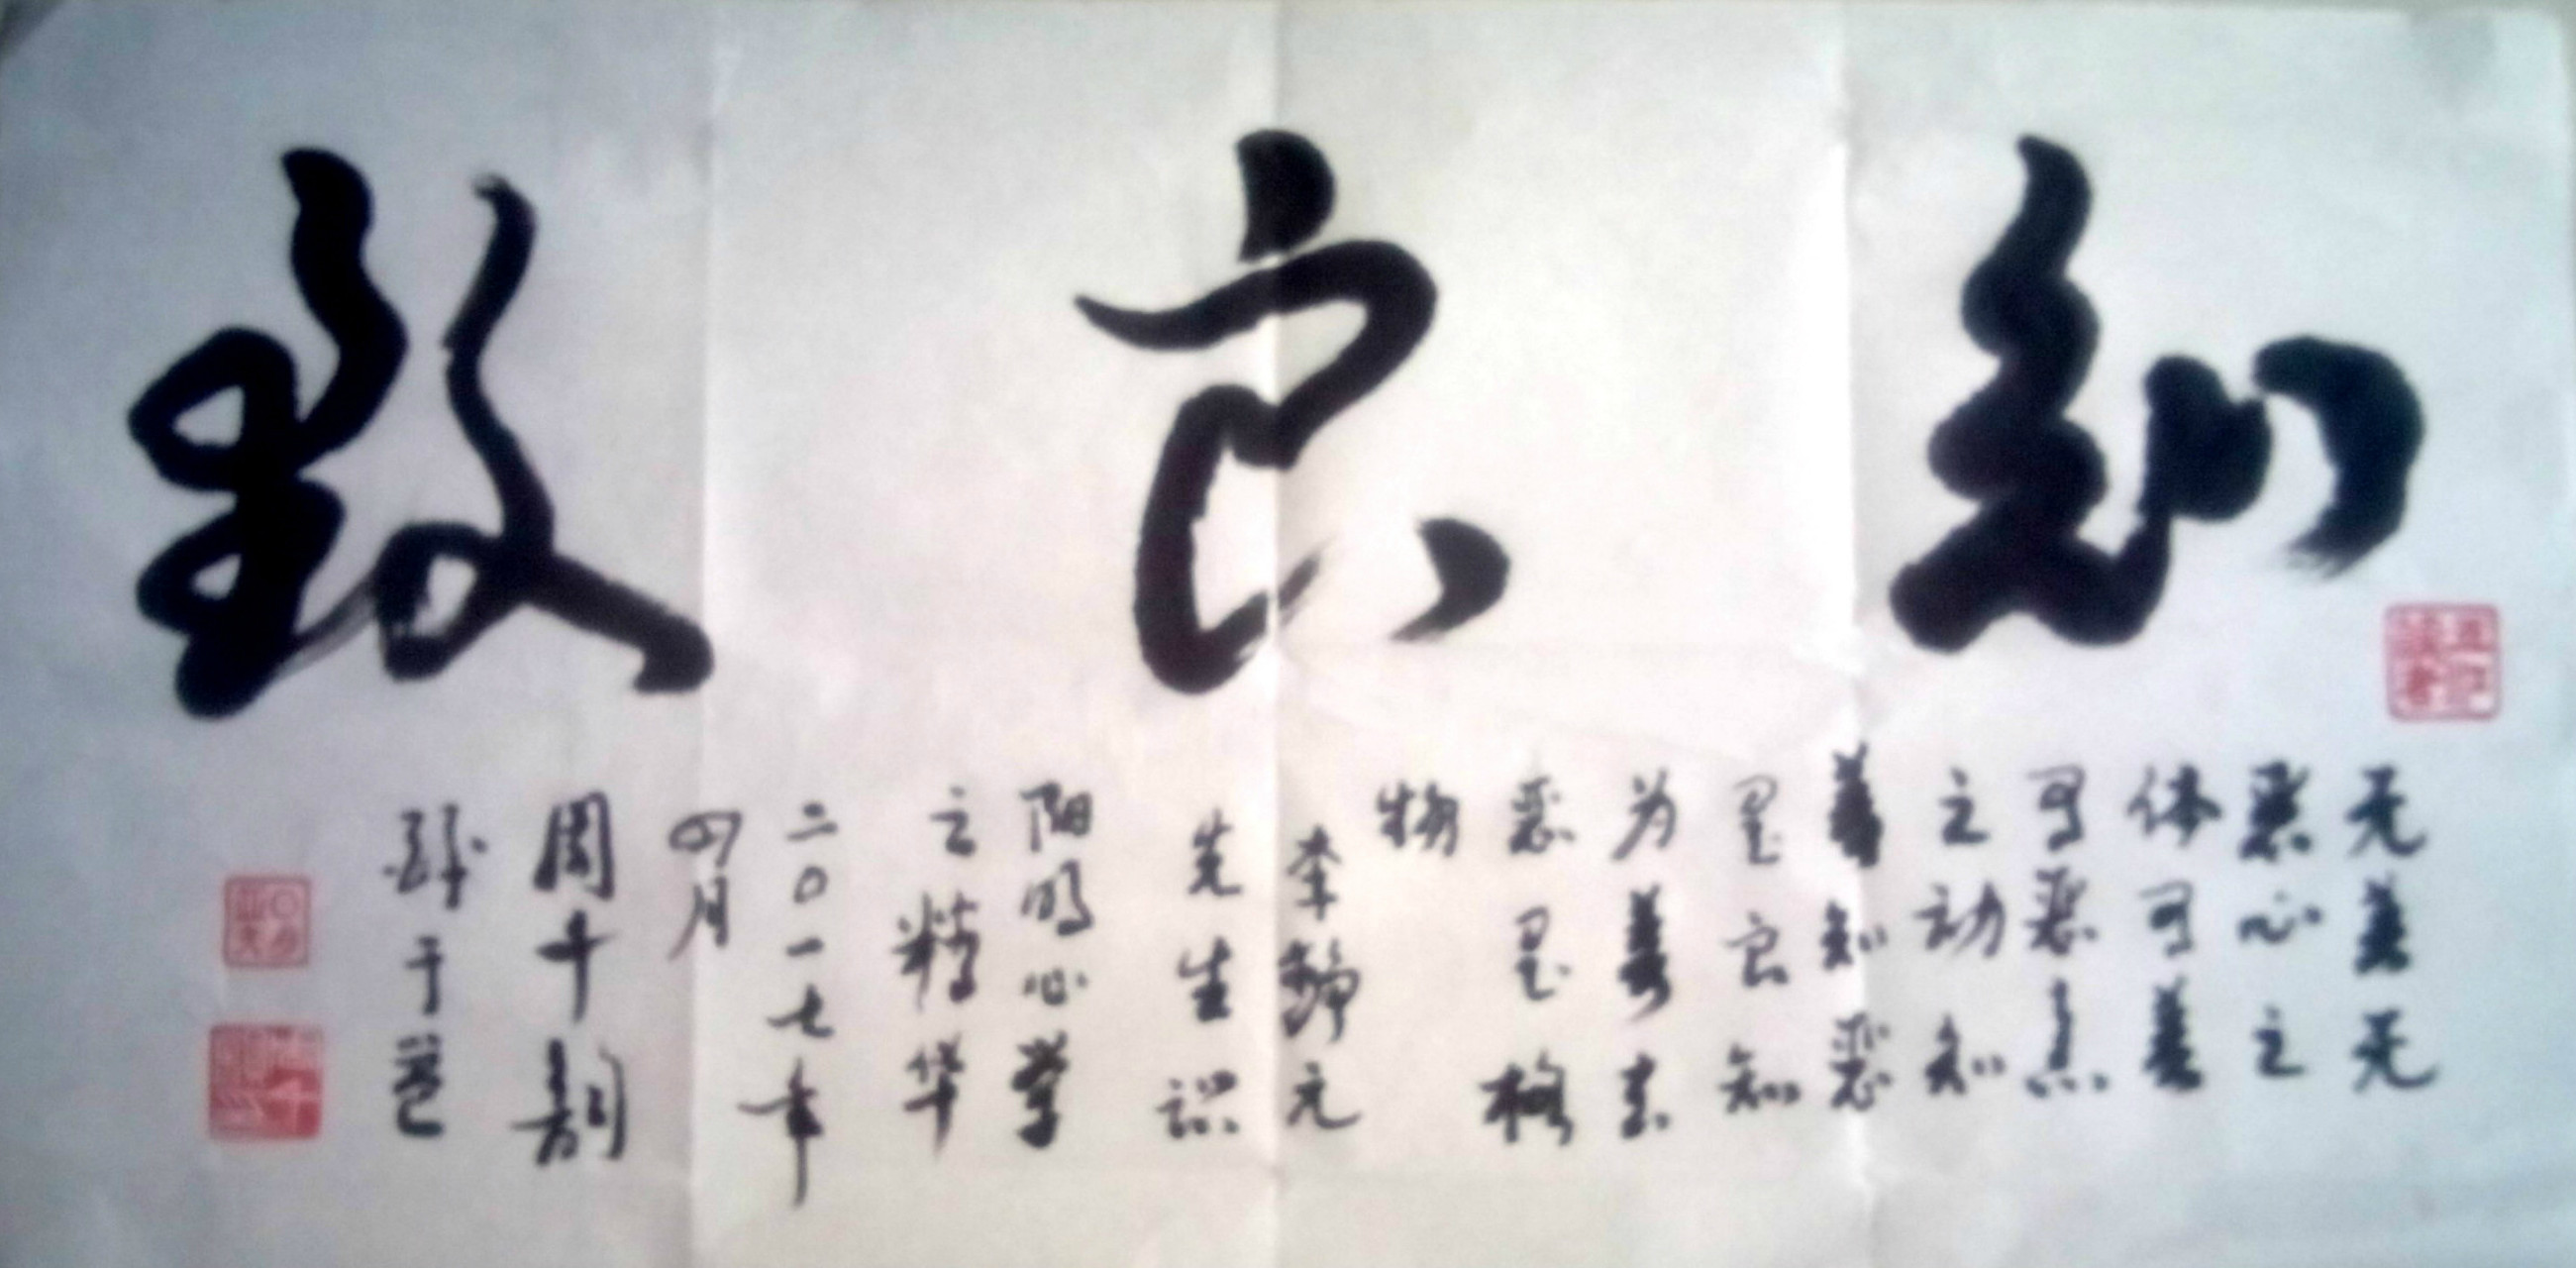 致良知
无善无
恶心之
体有善
有恶意
之动知
善知恶
是良知
为善去
恶是格
物
李元
先生识
阳明心学
之精华
二〇一七年
四月
周十韵
于